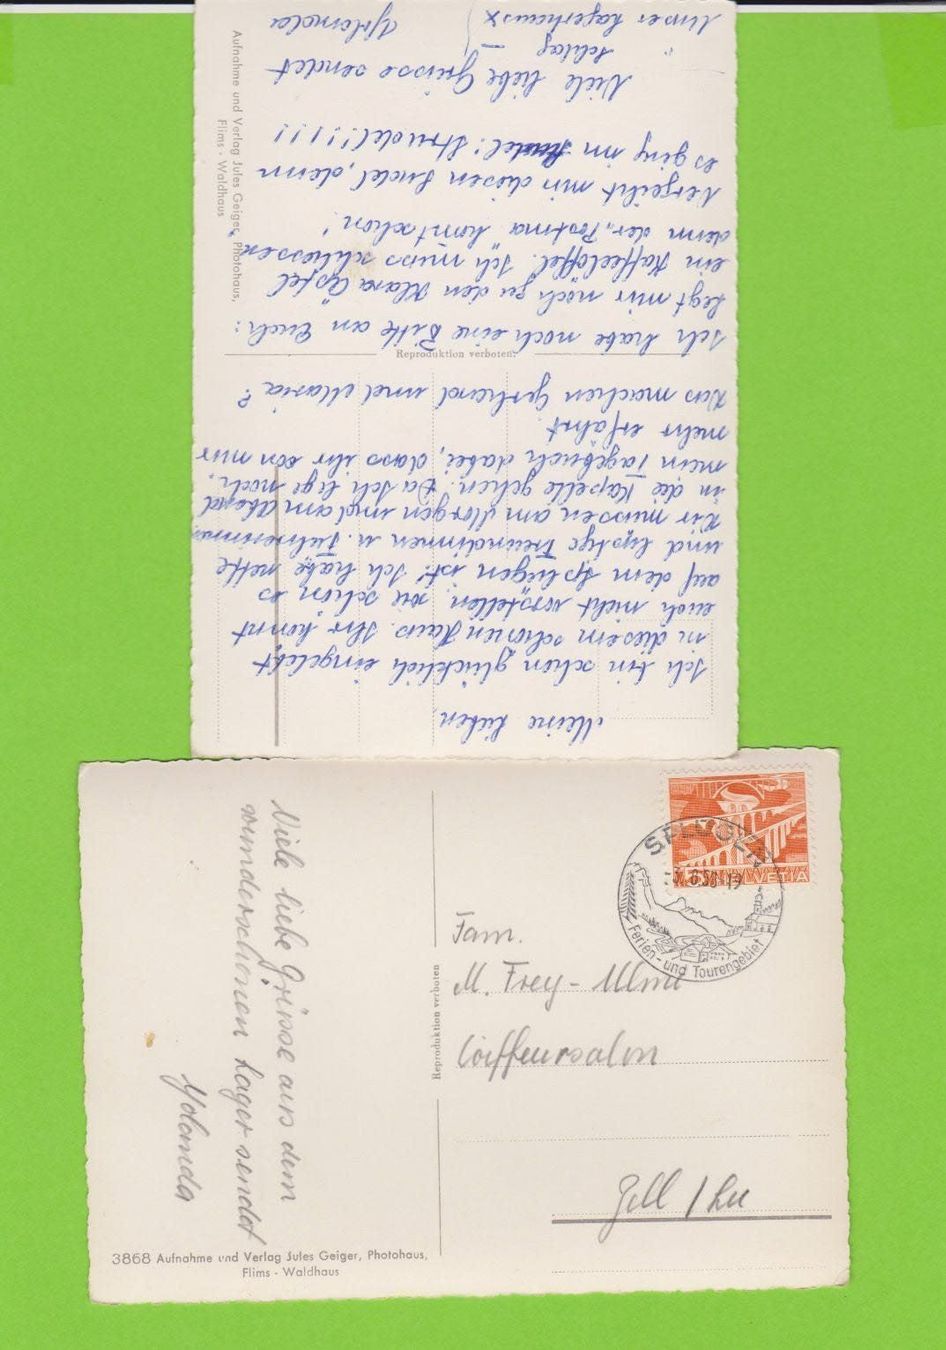 Meine Lieben,
Ich bin schon glücklich eingelebt
in diesem schönen Haus. Ihr könnt
euch nicht vorstellen, wie schön es
auf dem Splügen ist. Ich habe nette
und lustige Freundinnen u. Führerinnen
Wir müssen am Morgen und am Abend
in die Kapelle gehen. Da Ich lege noch
mein Tagebuch dabei, dass ihr von mir
mehr erfahrt.
Was machen Gerhard und Maria?
Reproduktion verboten.
Ich habe noch eine Bitte an Euch:
Legt mir noch zu den Klara Äpfel
ein Kaffeelöffel. Ich muss schliessen
denn der "Postma" komt schon!
Verzeiht mir diesen Sudel, denn
es ging im Strudel!!!!!
Viele liebe Grüsse sendet
Yolanda
Unser Lagerhaus x
Aufnahme und Verlag Jules Geiger, Photohaus,
Flims - Waldhaus
Viele liebe Grüsse aus dem
wunderschönen Lager sendet
Yolanda
3868 Aufnahme und Verlag Jules Geiger, Photohaus,
Flims - Waldhaus
Reproduktion verboten
HELVETIA
SPLÜGEN
Ferien- und Tourengebiet
Fam.
M. Frey-Ulmi
Coiffeursalon
Zell / Lu